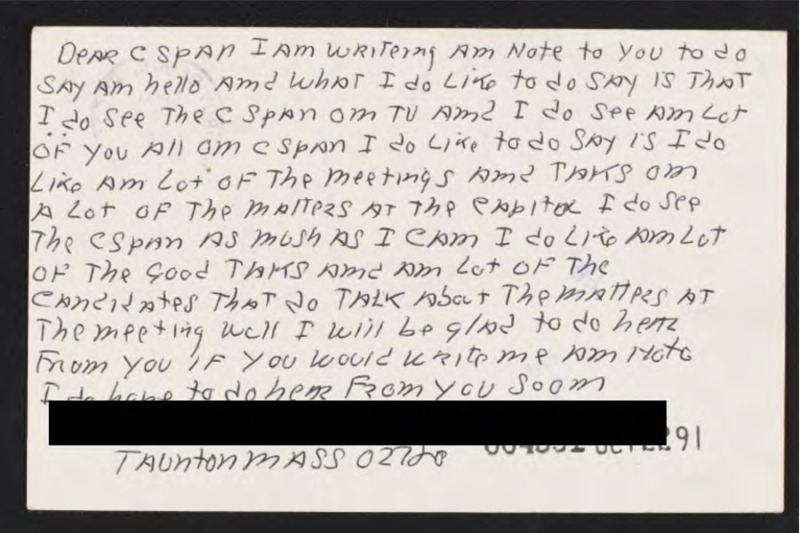 DEAR C SPAN I AM WRITEING AM NOTE to YOU to do
SAY AM hello Amd WHAT I do LIKE to do SAY IS THAT
I do SEE THE C SPAN om TV Amd I do SEE AM Lot
OF YOU All om C SPAN I do LIKE to do SAY IS I do
LIKE AM Lot OF THE MEETINGS Amd TALKS om
A Lot OF THE MATTERS AT THE CAPITOL I do SEE
THE CSPAN AS MUSH AS I CAM I do LIKE AM Lot
OF THE Good TALKS Amd AM Lot OF THE
CANdidATES THAT do TALK About THE MATTERS AT
THE MEETING WELL I WILL be glAd to do hERE
FROM YOU IF YOU WOULD WRITE ME AM NOTE
I do hope to do hERE FROM YOU SOOM
OCT 22 91
TAUNTON MASS 02780